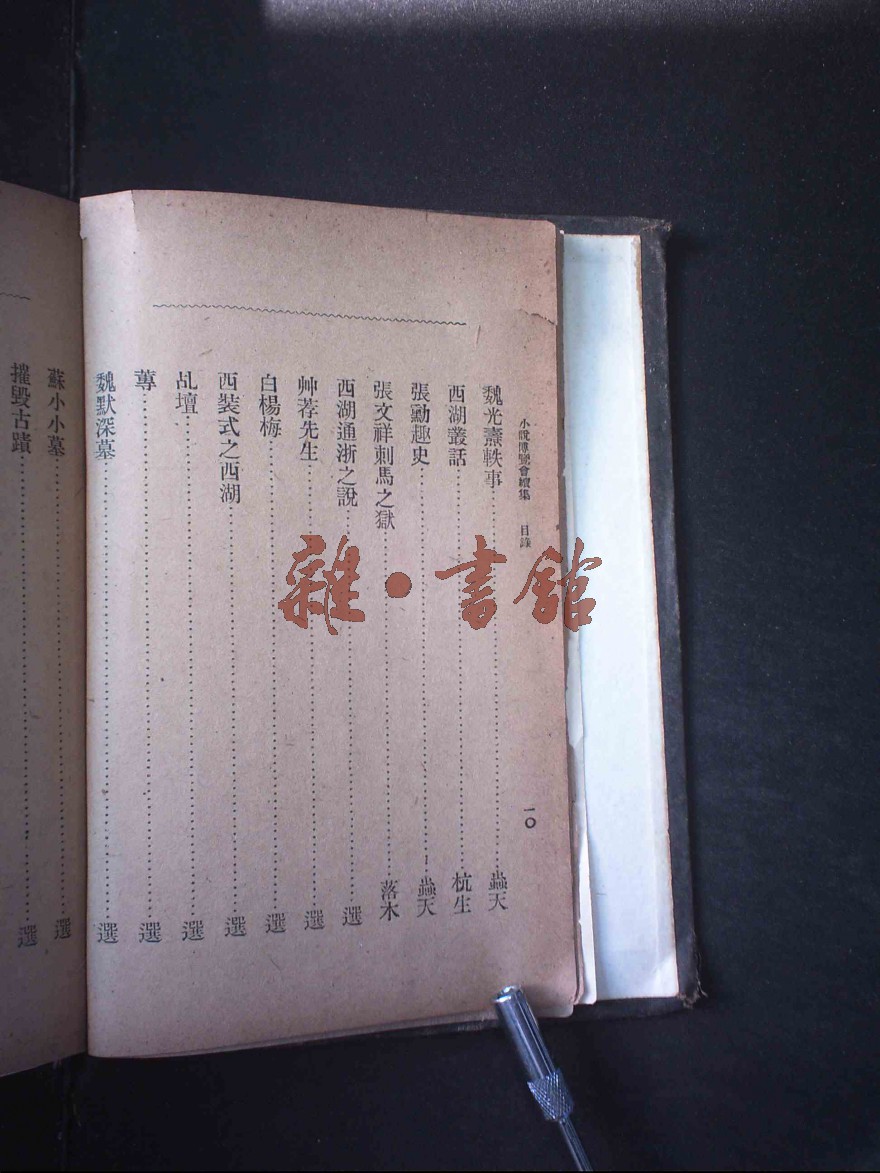 小說博覽會續集　目錄　一〇
魏光燾軼事……蝨天
西湖叢話……杭生
張勳趣史……蝨天
張文祥刺馬之獄……落木
西湖通浙之說……選
艸荐先生……選
白楊梅……選
西裝式之西湖……選
乩壇……選
蓴……選
魏默深墓……選
蘇小小墓……選
摧毀古蹟……選
雜·書館